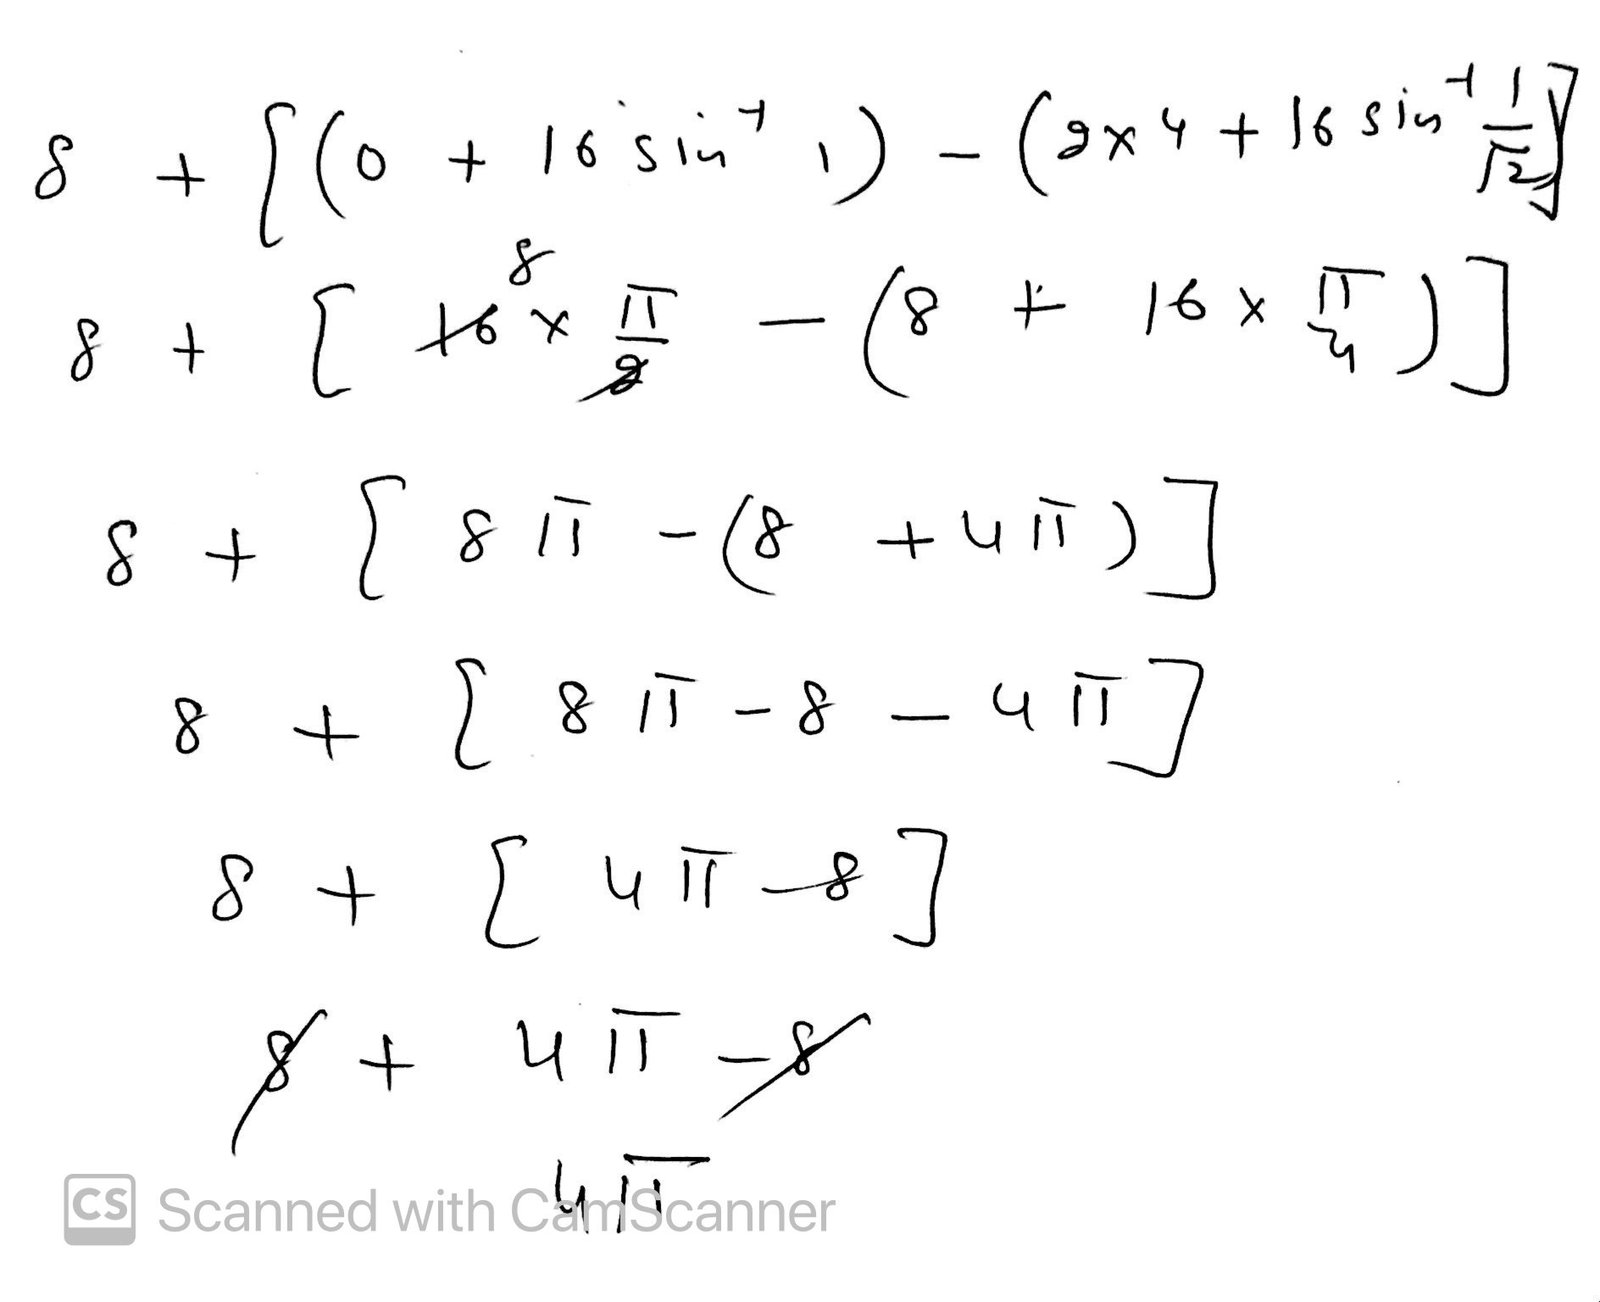 8 + [(0 + 16 sin⁻¹ 1) - (2×4 + 16 sin⁻¹ 1/√2)]
8
8 + [16 × π/2 - (8 + 16 × π/4)]
8 + [8π - (8 + 4π)]
8 + [8π - 8 - 4π]
8 + [4π - 8]
8 + 4π - 8
4π
CS Scanned with CamScanner